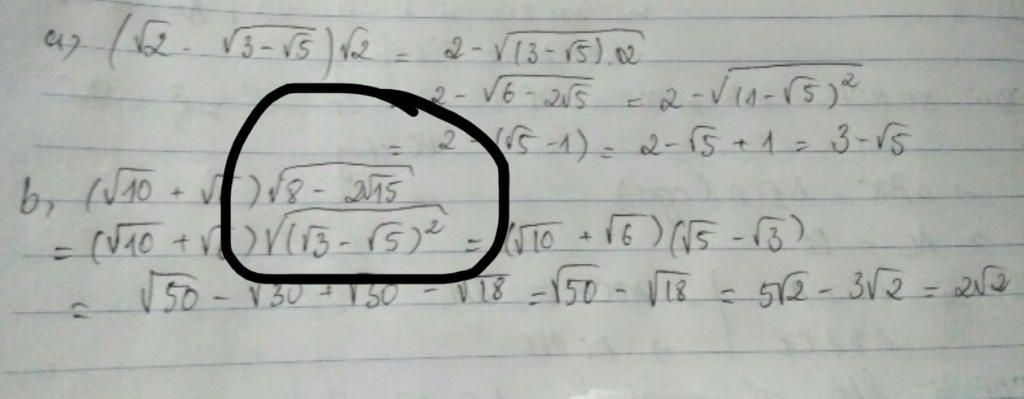 a) (√2 - √(3-√5))√2 = 2 - √((3-√5).2)
2 - √(6-2√5) = 2 - √((1-√5)²)
= 2 - (√5 -1) = 2-√5 + 1 = 3-√5
b, (√10 + √ )√(8 - 2√15)
= (√10 + √ )√((√3 - √5)²) = (√10 + √6)(√5 - √3)
= √50 - √30 + √30 - √18 = √50 - √18 = 5√2 - 3√2 = 2√2